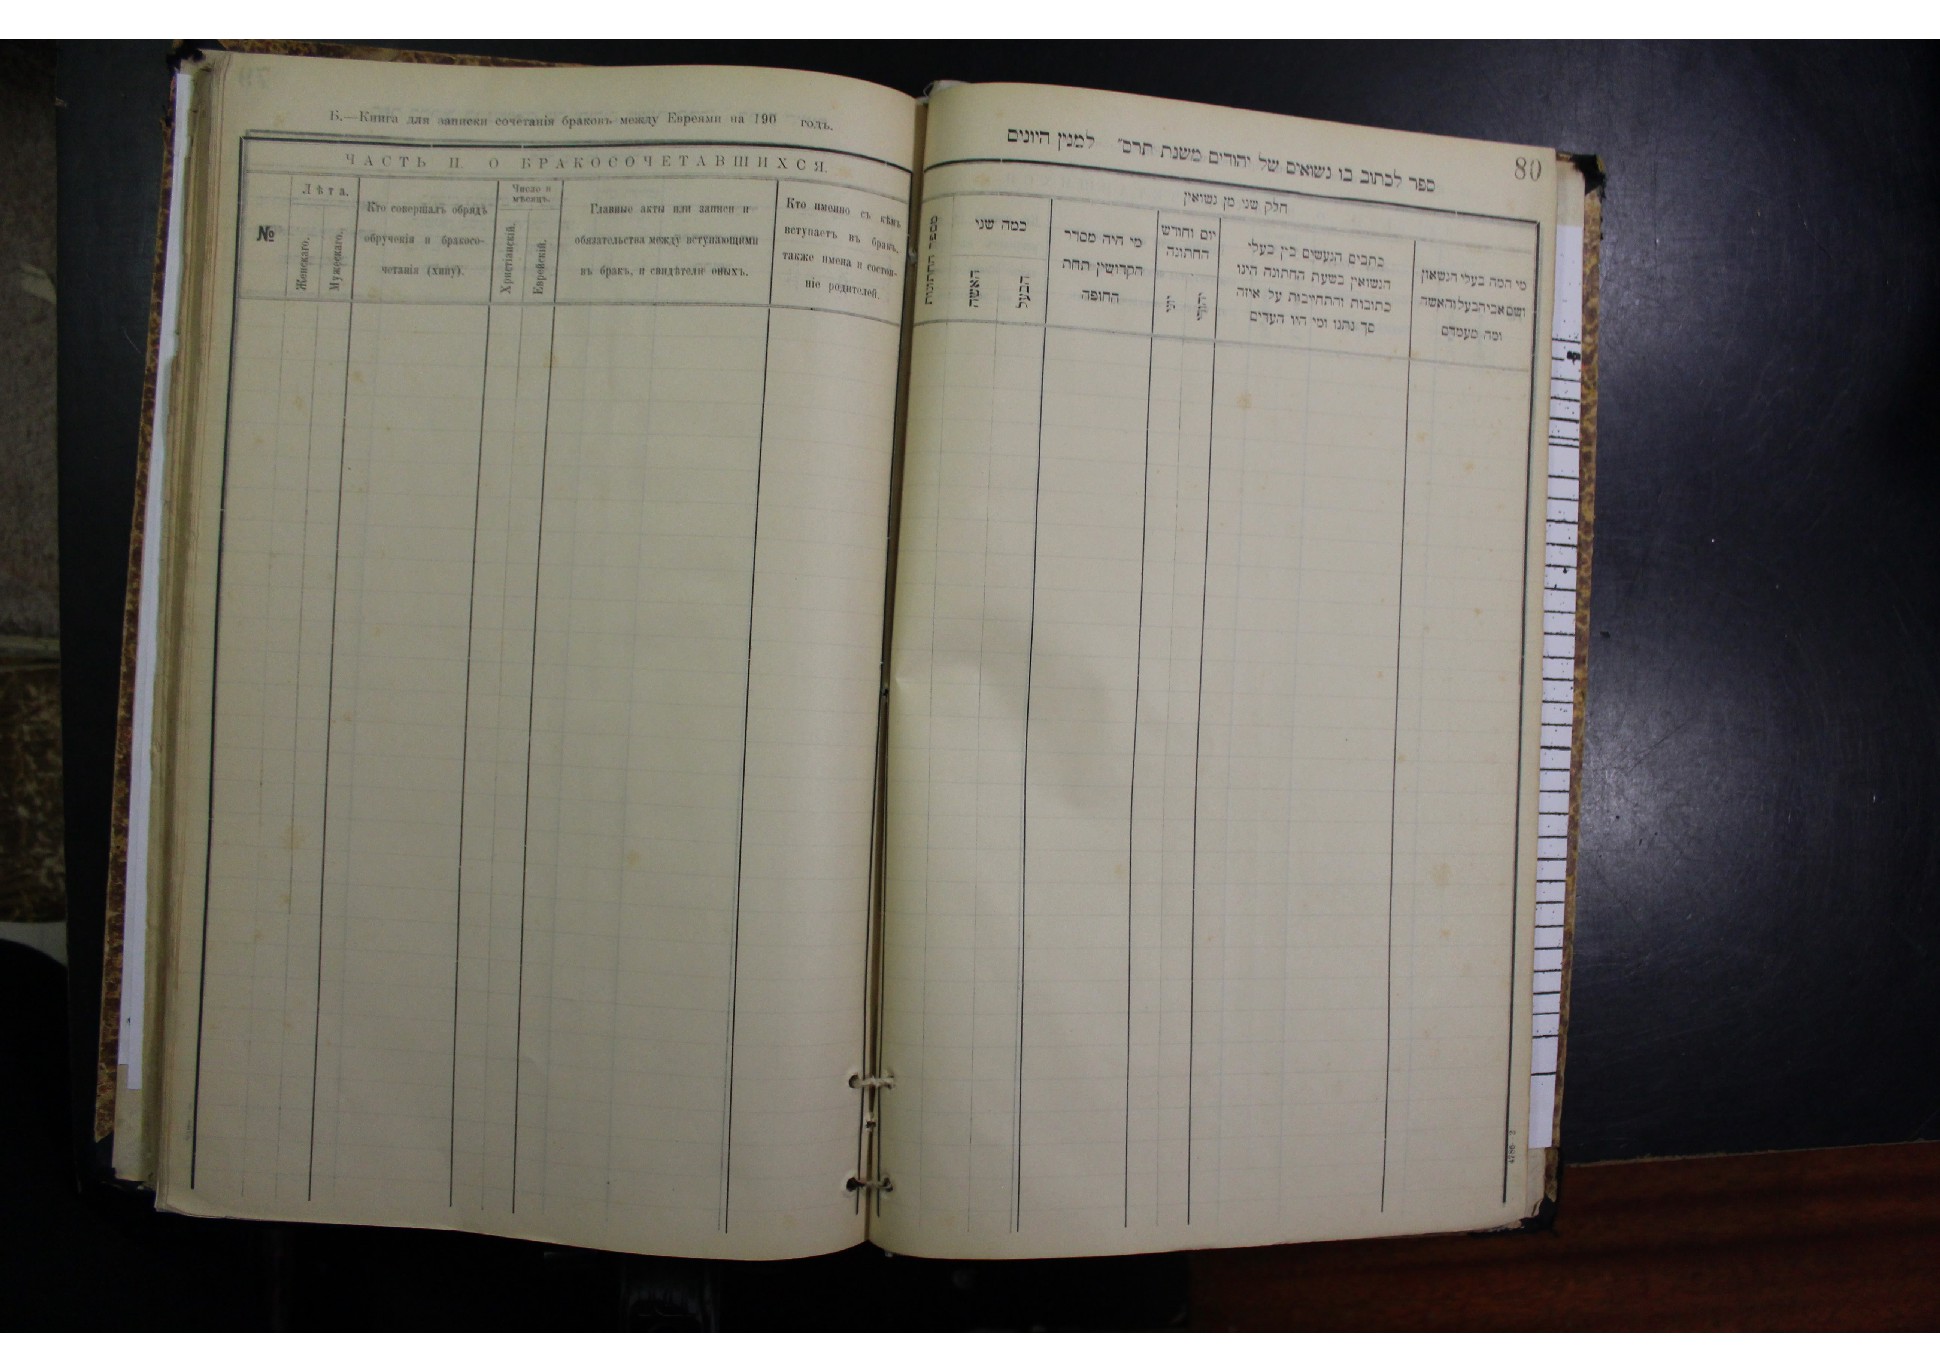 Б.—Книга для записки сочетанія браковъ между Евреями на 190 годъ.
ЧАСТЬ II. О БРАКОСОЧЕТАВШИХСЯ.
№
Лѣта.
Женскаго.
Мужескаго.
Кто совершалъ обрядъ
обрученія и бракосо-
четанія (хипу).
Число и
мѣсяцъ.
Христіанскій.
Еврейскій.
Главные акты или записи и
обязательства между вступающими
въ бракъ, и свидѣтели оныхъ.
Кто именно съ кѣмъ
вступаетъ въ бракъ,
также имена и состоя-
ніе родителей.
80
ספר לכתוב בו נשואים של יהודים משנת תרס״ למנין היונים
חלק שני מן נשואין
מספר החתונות
כמה שני
האשה
הבעל
מי היה מסדר
הקדושין תחת
החופה
יום וחודש
החתונה
יוני
יהודי
כתבים הנעשים בין בעלי
הנשואין בשעת החתונה היינו
כתובות והתחייבות על איזה
סך נתנו ומי היו העדים
מי המה בעלי הנשואין
ושם אבי הבעל והאשה
ומה מעמדם